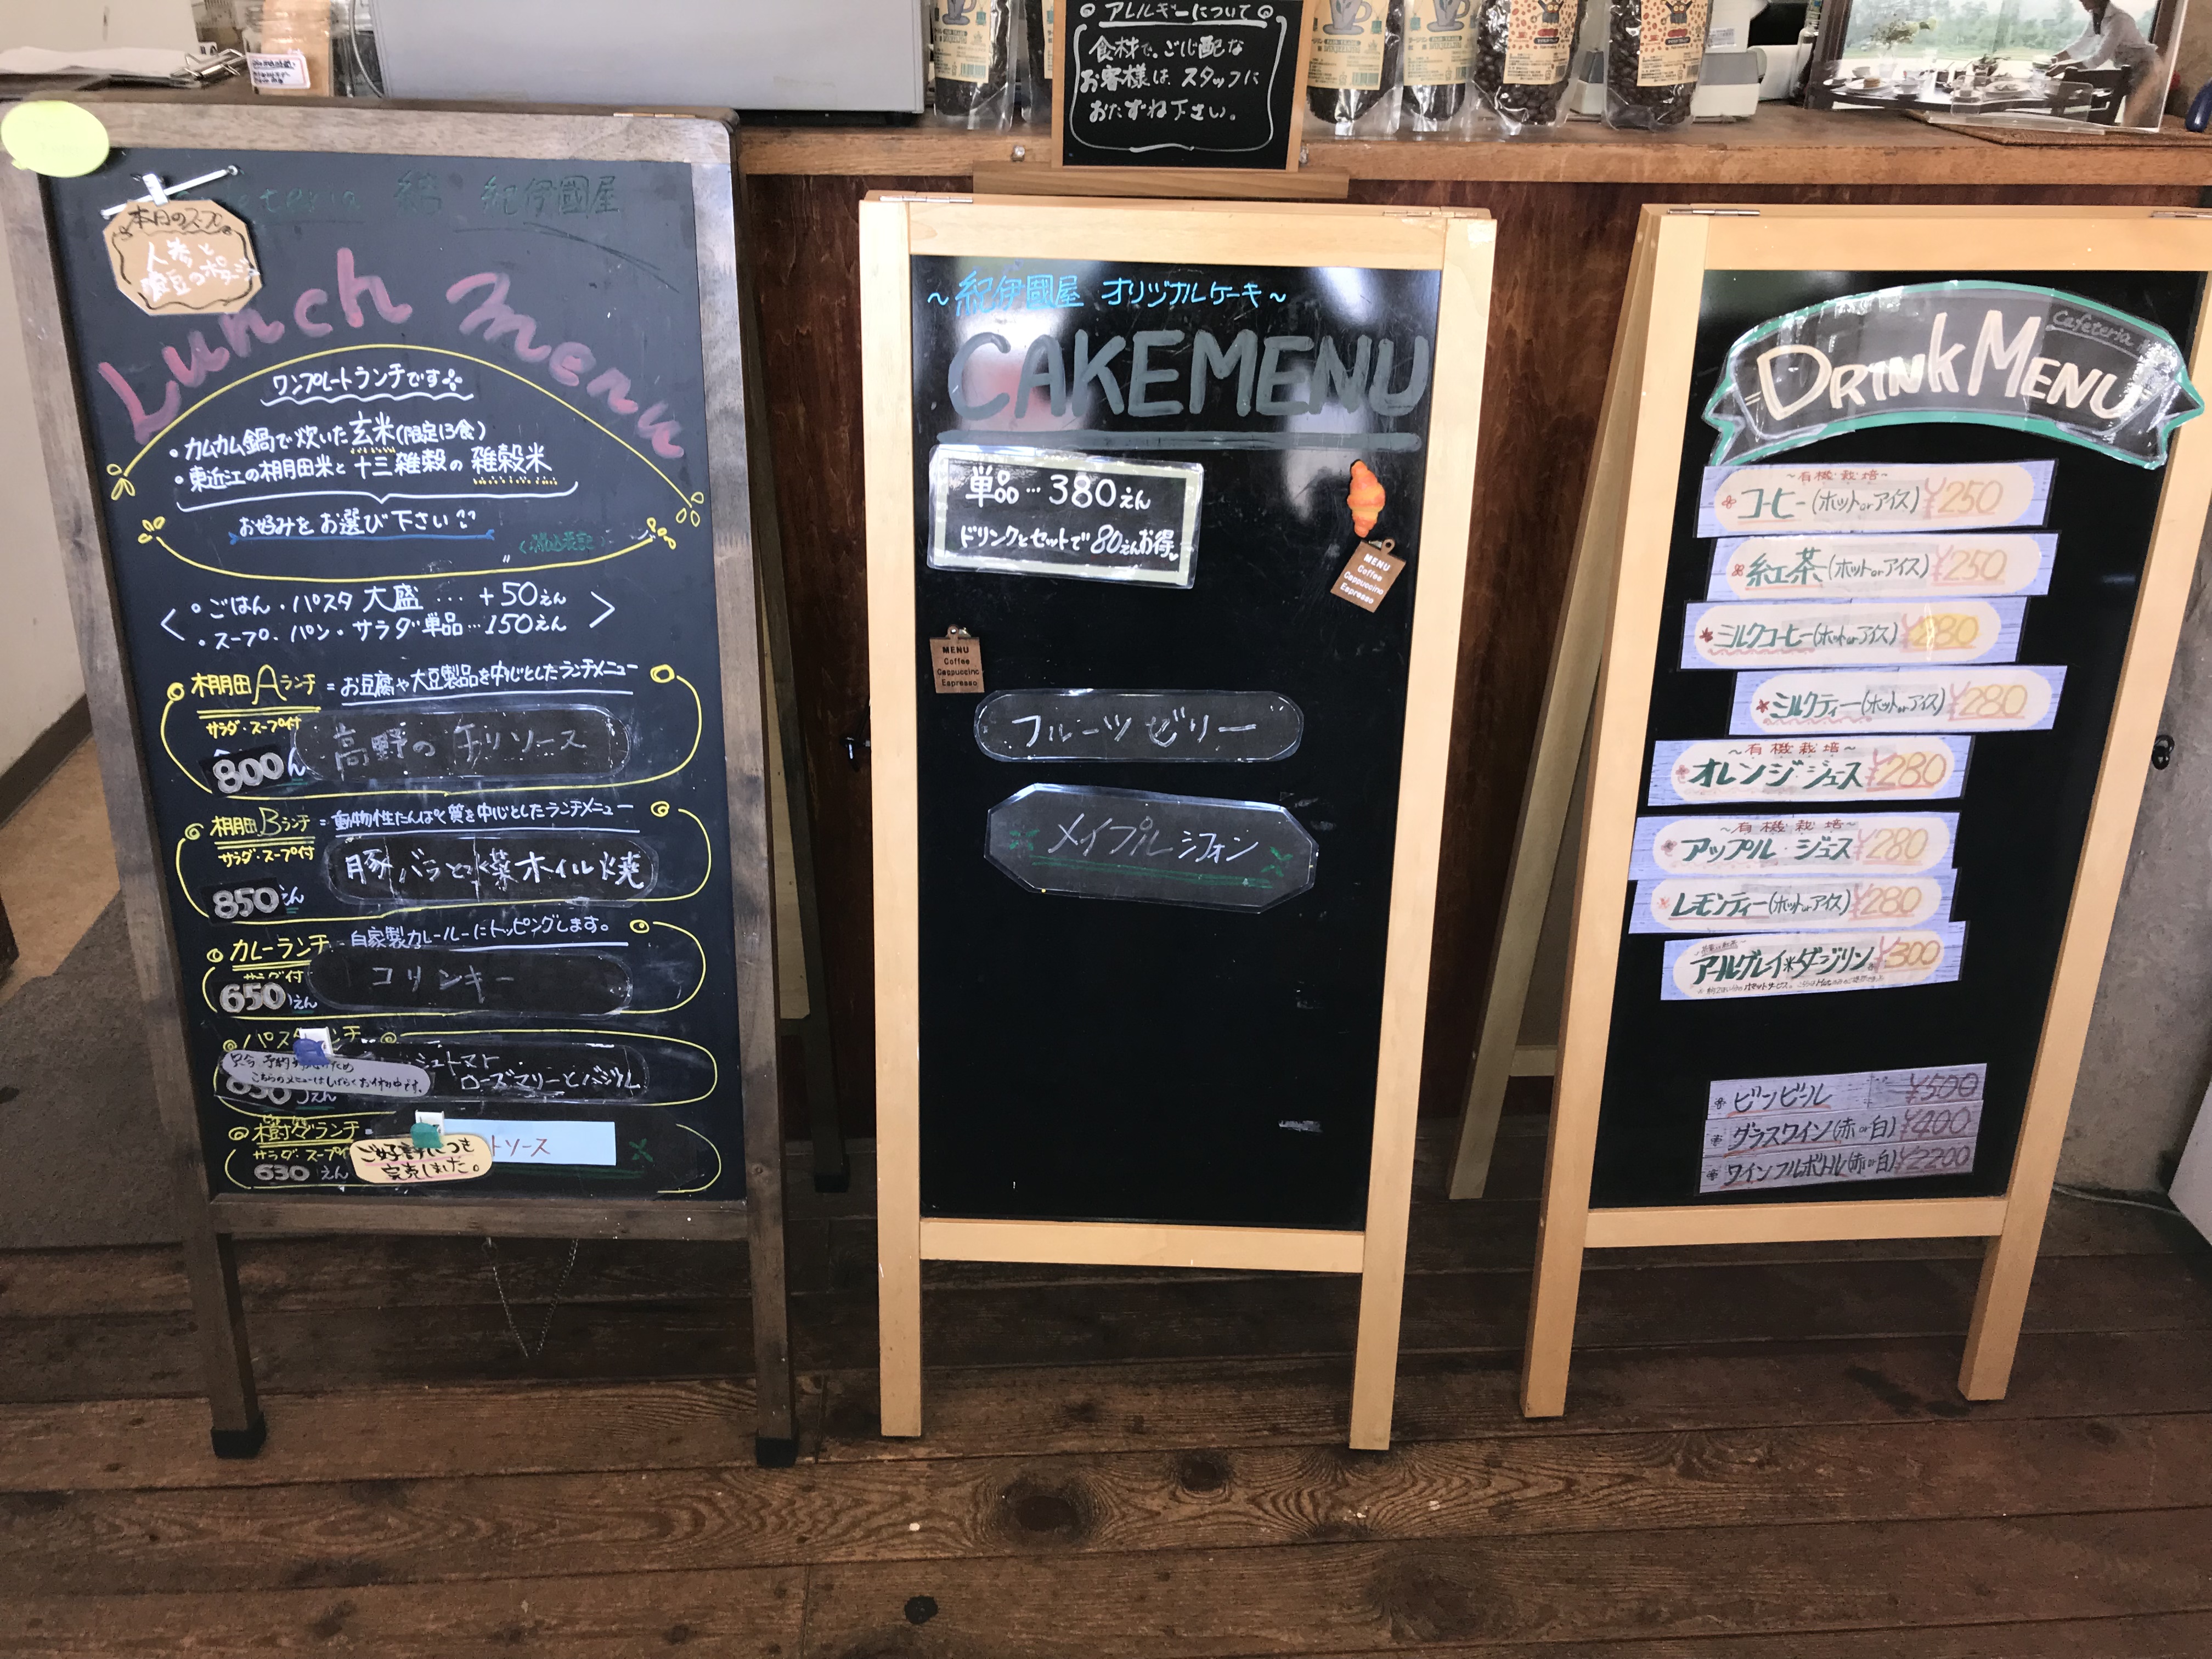 アレルギーについて
食材で、ご心配な
お客様は、スタッフに
おたずね下さい。
紀伊國屋
本日のスープ
人参と
Lunch menu
ワンプレートランチです
・カムカム鍋で炊いた玄米(限定13食)
・東近江の棚田米と十三雑穀の雑穀米
お好みをお選び下さい
ごはん・パスタ 大盛 … +50えん
・スープ・パン・サラダ単品…150えん
棚田Aランチ = お豆腐や大豆製品を中心としたランチメニュー
サラダ・スープ付
高野のチリソース
800
棚田Bランチ = 動物性たんぱく質を中心としたランチメニュー
サラダ・スープ付
豚バラと 菜オイル焼
850えん
カレーランチ 自家製カレールーにトッピングします。
サラダ付
コリンキー
650えん
こちらのメニューはしばらくお待ち中です。
ローズマリーとバジル
ランチ
サラダ・スープ付
630えん
ご好評につき
完売しました。
トソース
~紀伊國屋 オリジナルケーキ~
CAKEMENU
単品…380えん
ドリンクとセットで80えんお得
MENU
Coffee
Cappuccino
Espresso
MENU
Coffee
Cappuccino
Espresso
フルーツゼリー
メイプルシフォン
Cafeteria
DRINK MENU
~有機栽培~
コーヒー(ホットorアイス) ¥250
紅茶(ホットorアイス) ¥250
ミルクコーヒー(ホットorアイス) ¥280
ミルクティー(ホットorアイス) ¥280
~有機栽培~
オレンジジュース ¥280
~有機栽培~
アップル・ジュース ¥280
レモンティー(ホットorアイス) ¥280
アールグレイ*ダージリン ¥300
ビンビール ¥500
グラスワイン(赤or白) ¥400
ワインフルボトル(赤or白) ¥2200